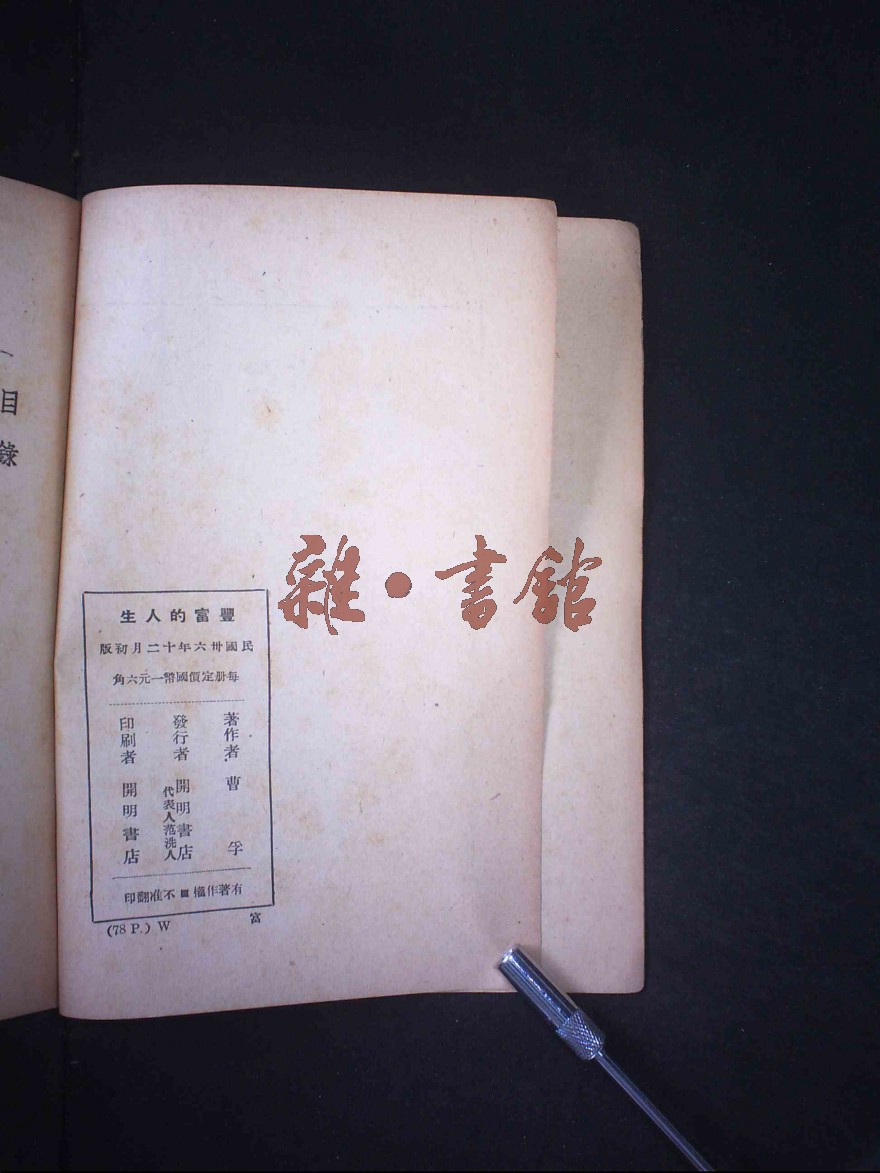 目錄
雜·書館
豐富的人生
民國卅六年十二月初版
每册定價國幣一元六角
著作者 曹孚
發行者 開明書店
代表人范洗人
印刷者 開明書店
有著作權■不准翻印
(78 P.) W 富